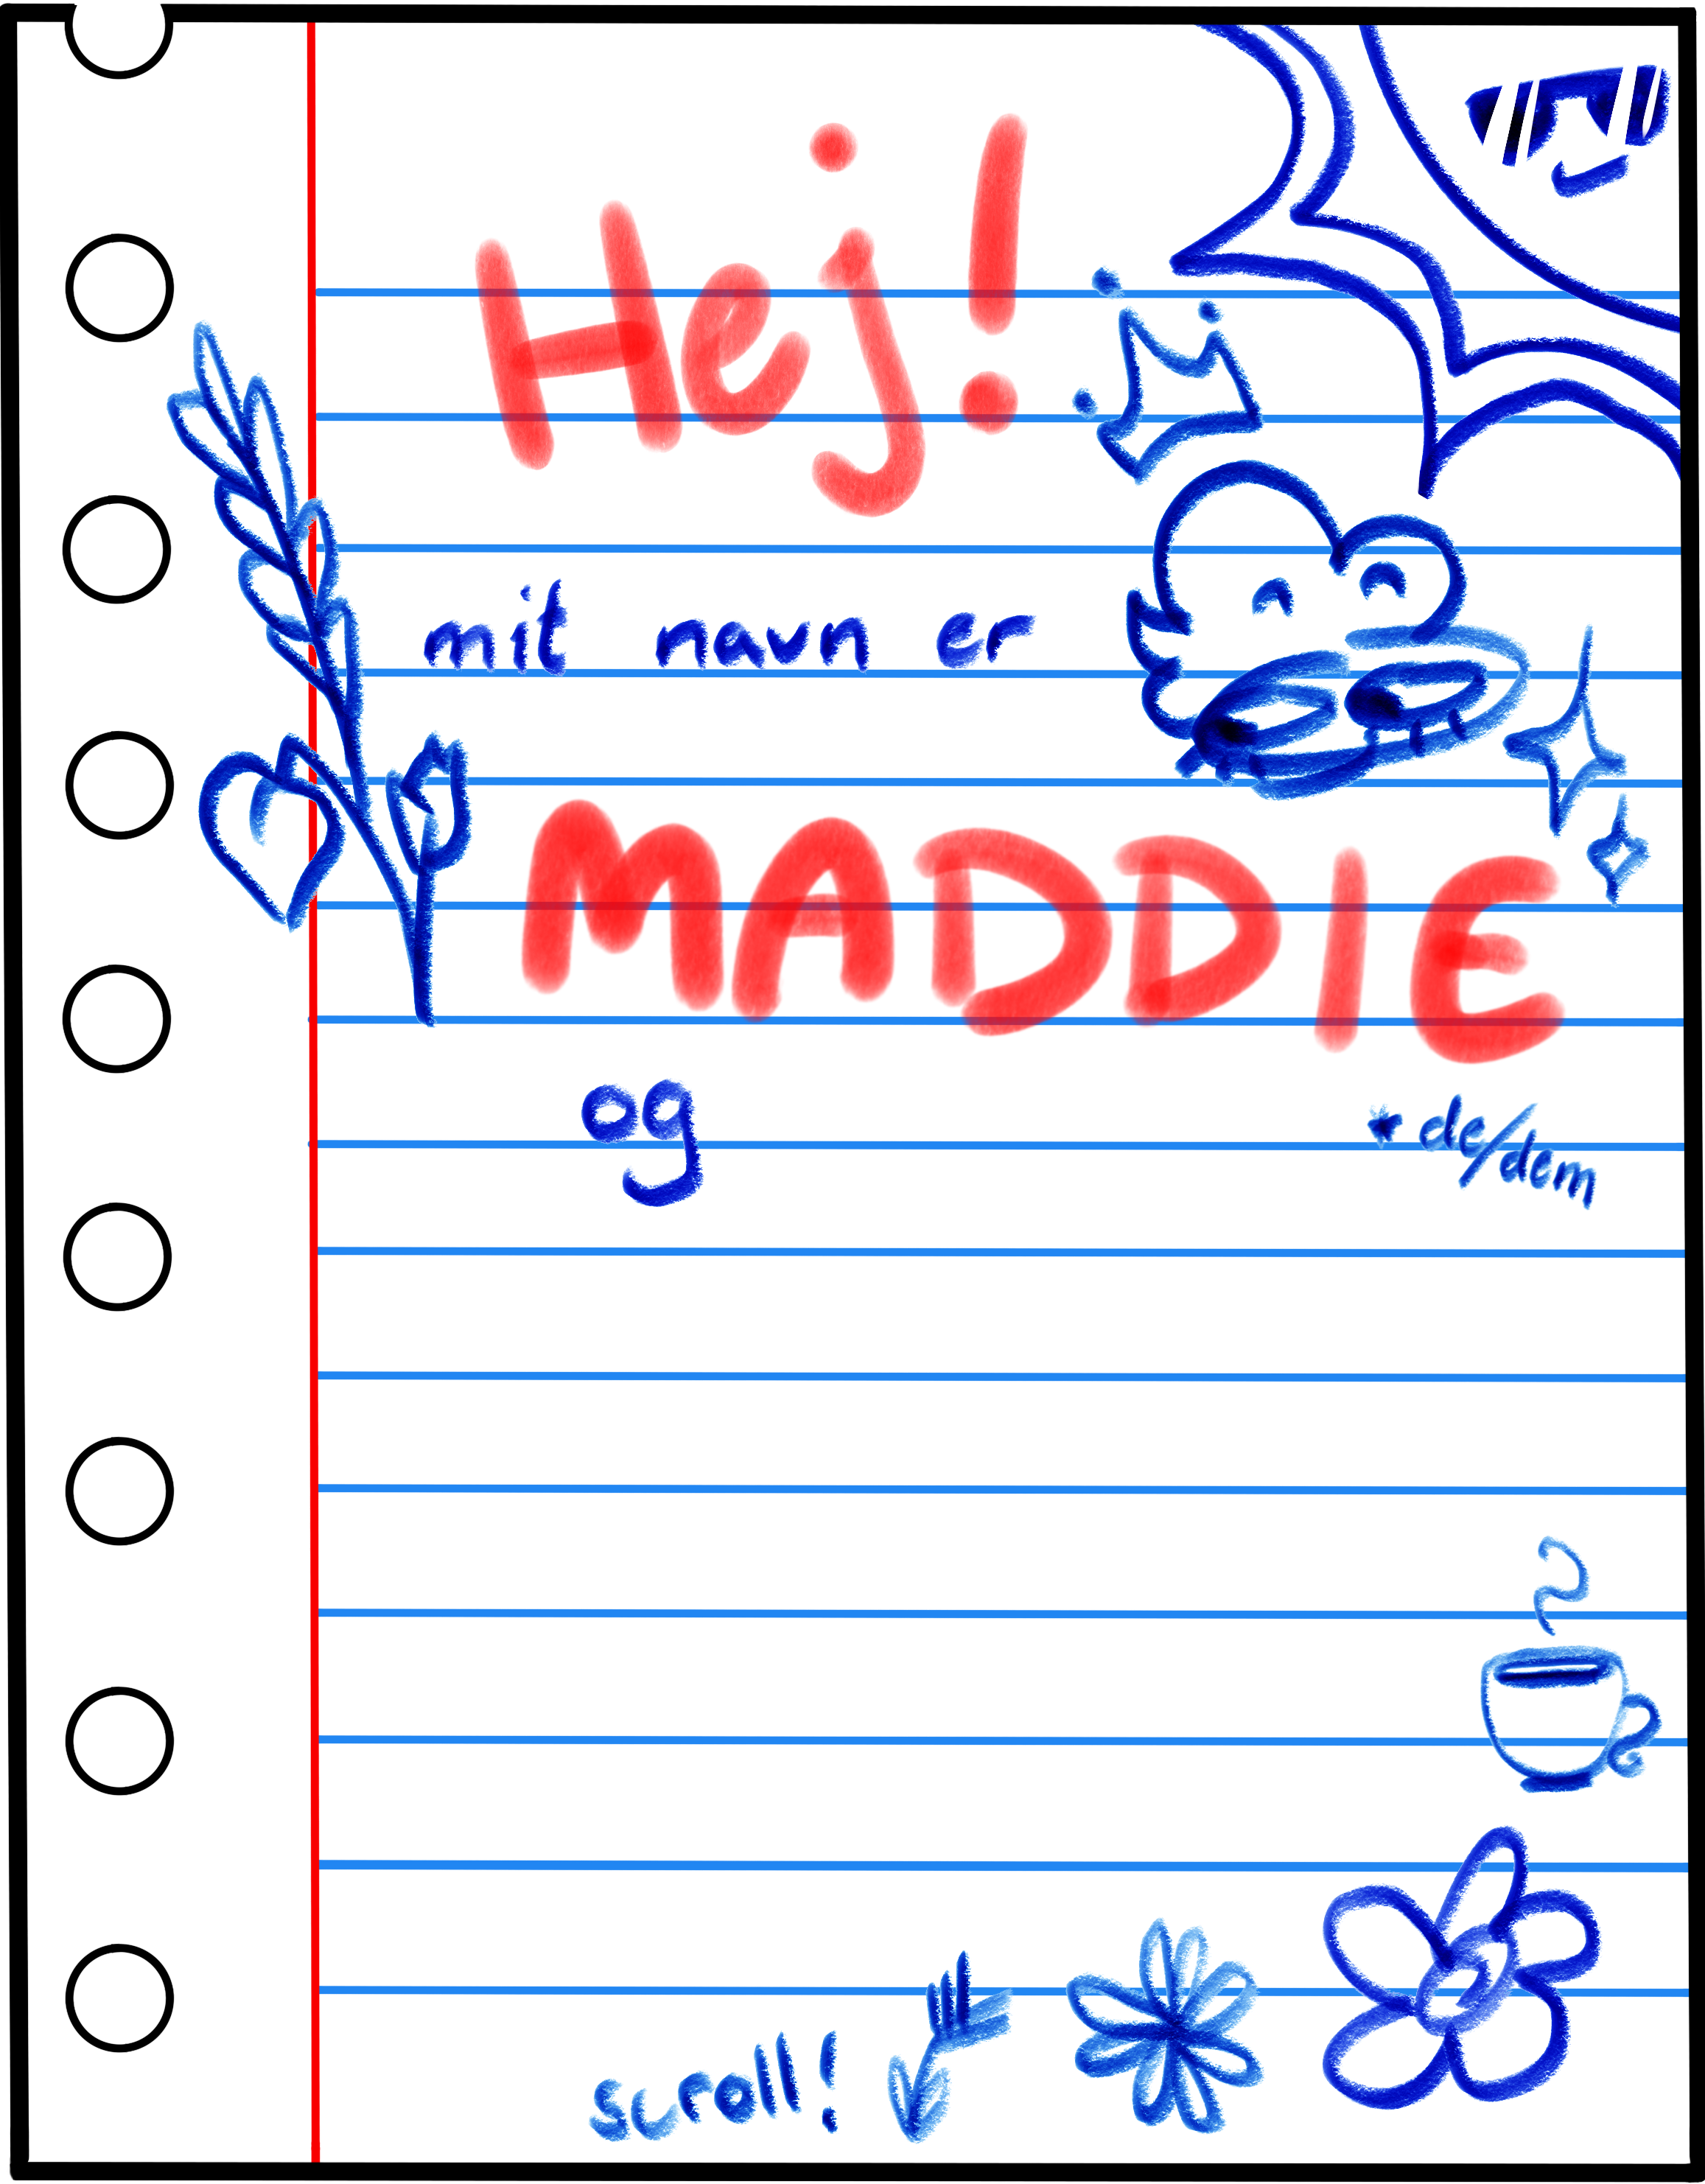 Hej!
mit navn er
MADDIE
og
* de/dem
scroll!